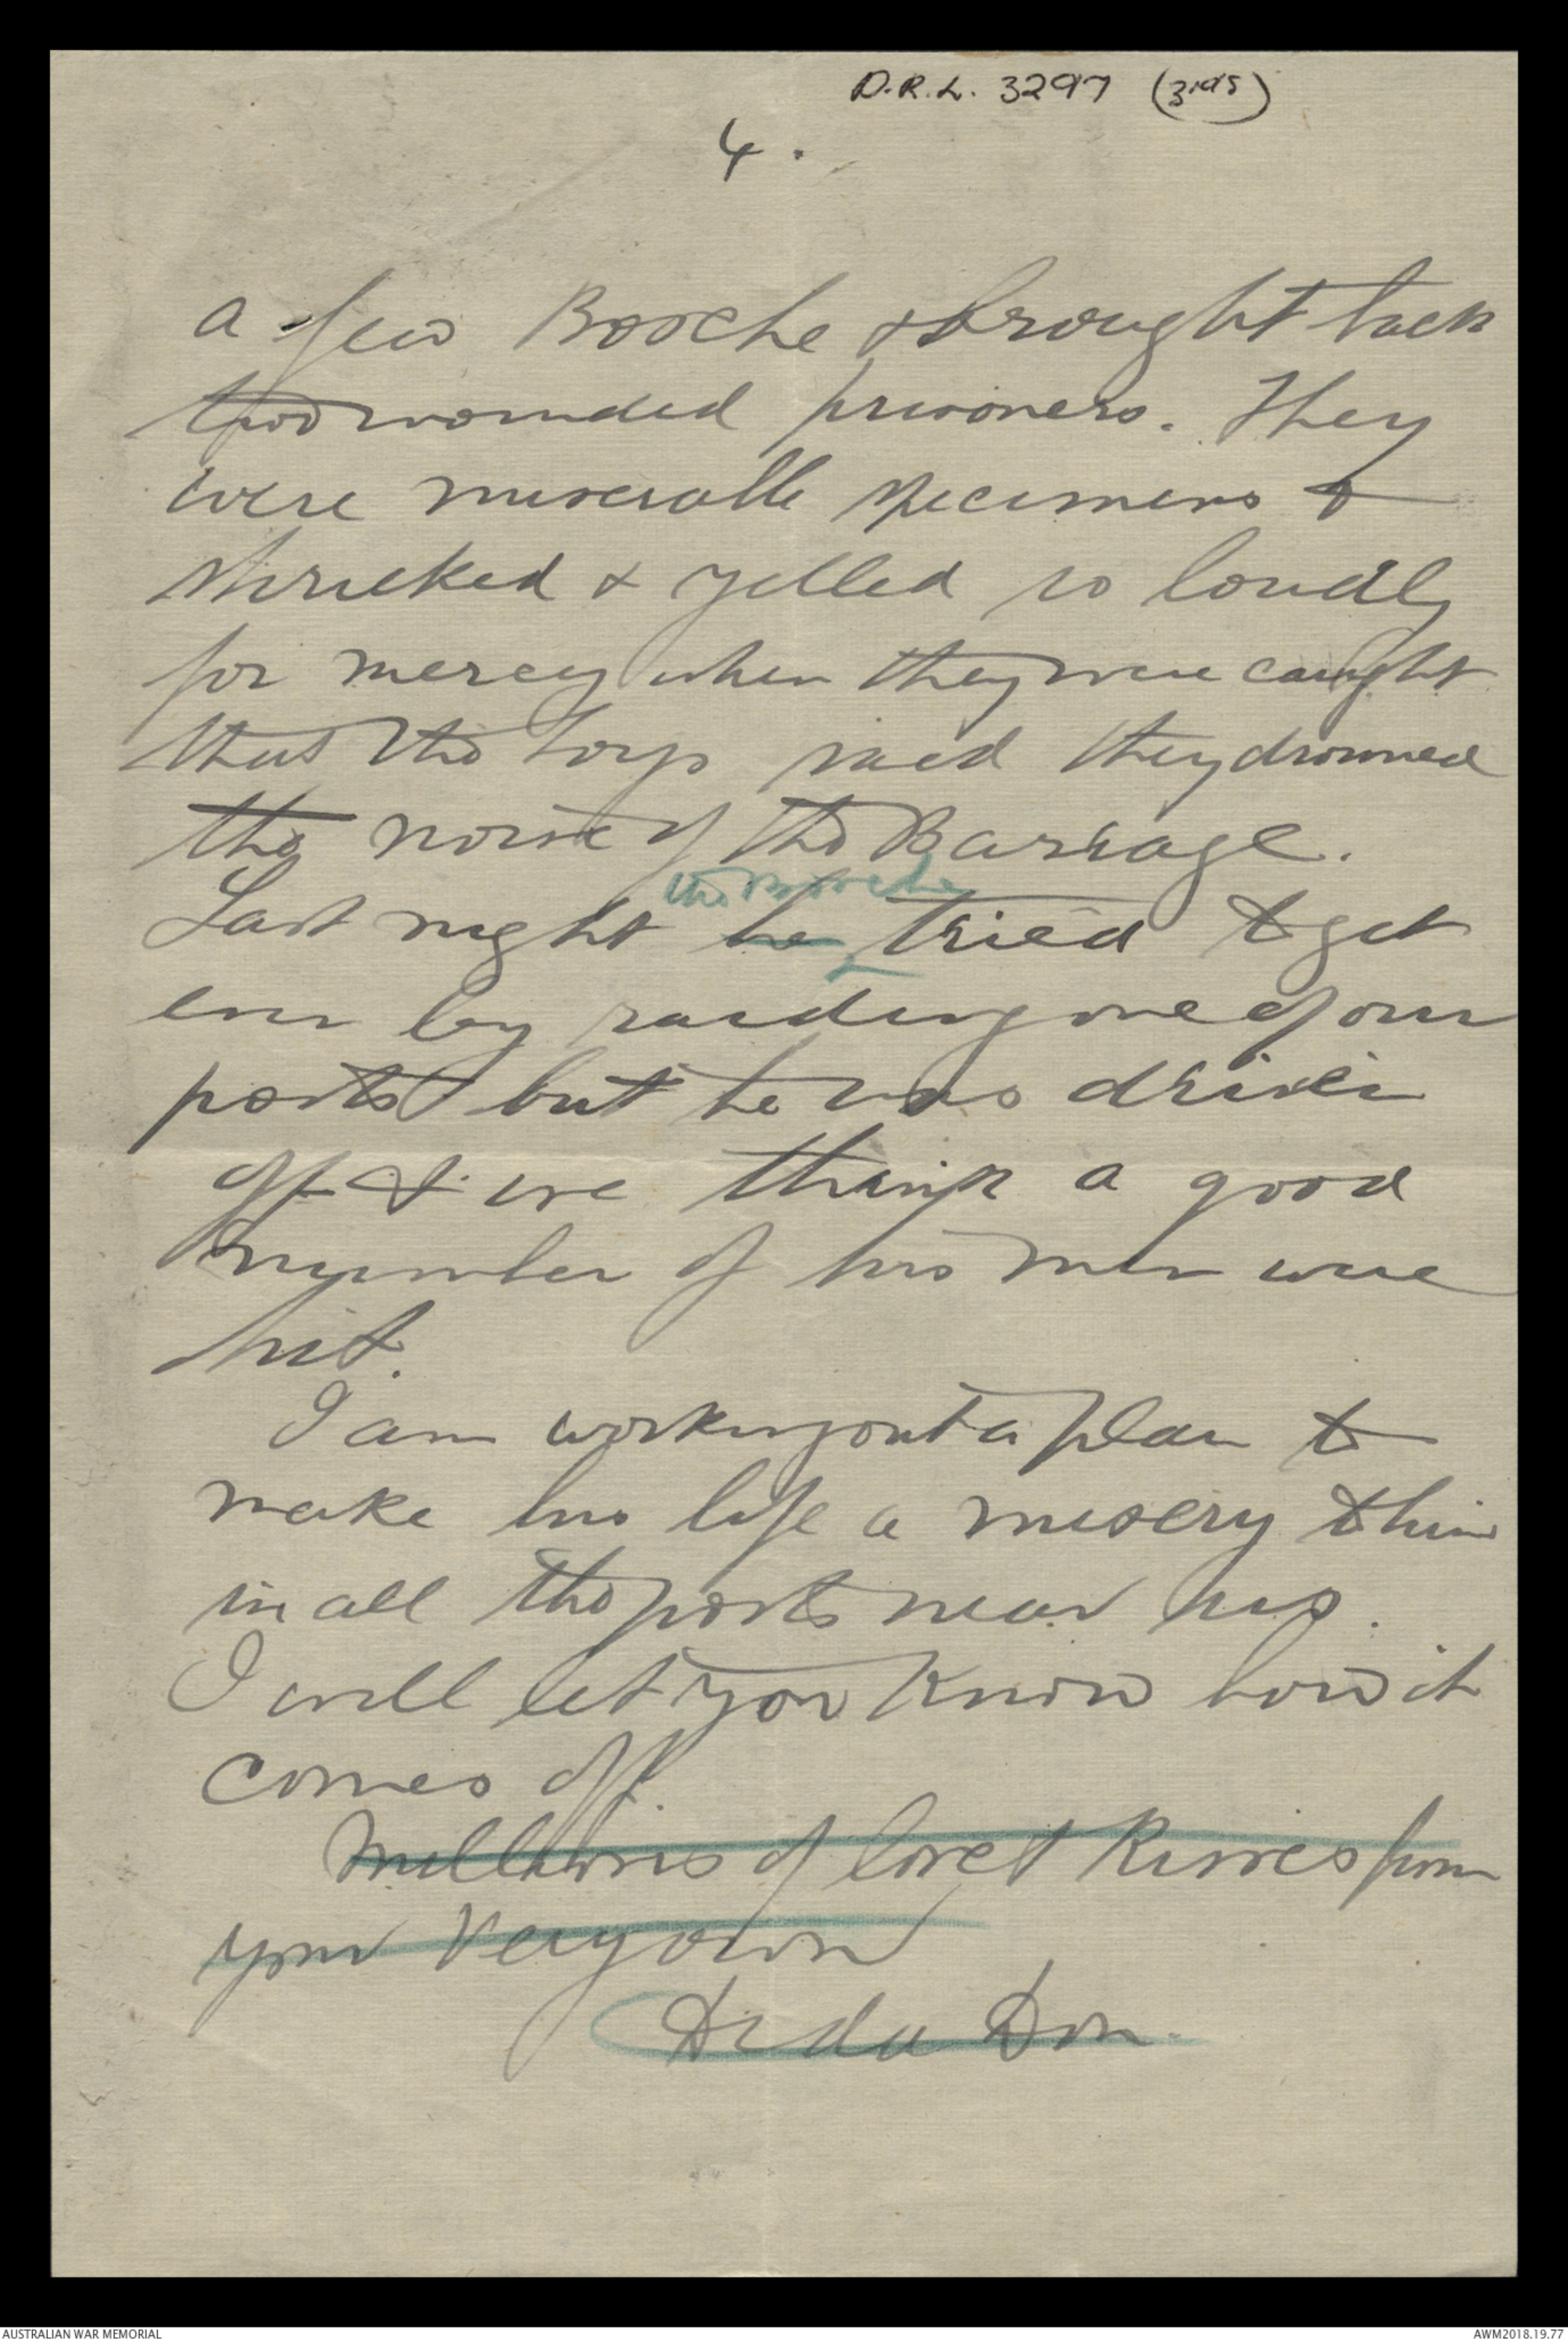 D.R.L. 3297 (3rd S)
4.
a few Booche & brought back
two wounded prisoners. They
were miserable specimens &
shrieked & yelled so loudly
for mercy when they were caught
that the boys said they drowned
the noise of the Barrage.
the Booche
Last night he tried to get
even by raiding one of our
posts but he was driven
off & we think a good
number of his men were
hit.
I am working out a plan to
make his life a misery to him
in all the posts near us.
I will let you know how it
comes off.
Millions of love & Kisses from
your Very own
Dida Don.
AUSTRALIAN WAR MEMORIAL
AWM2018.19.77